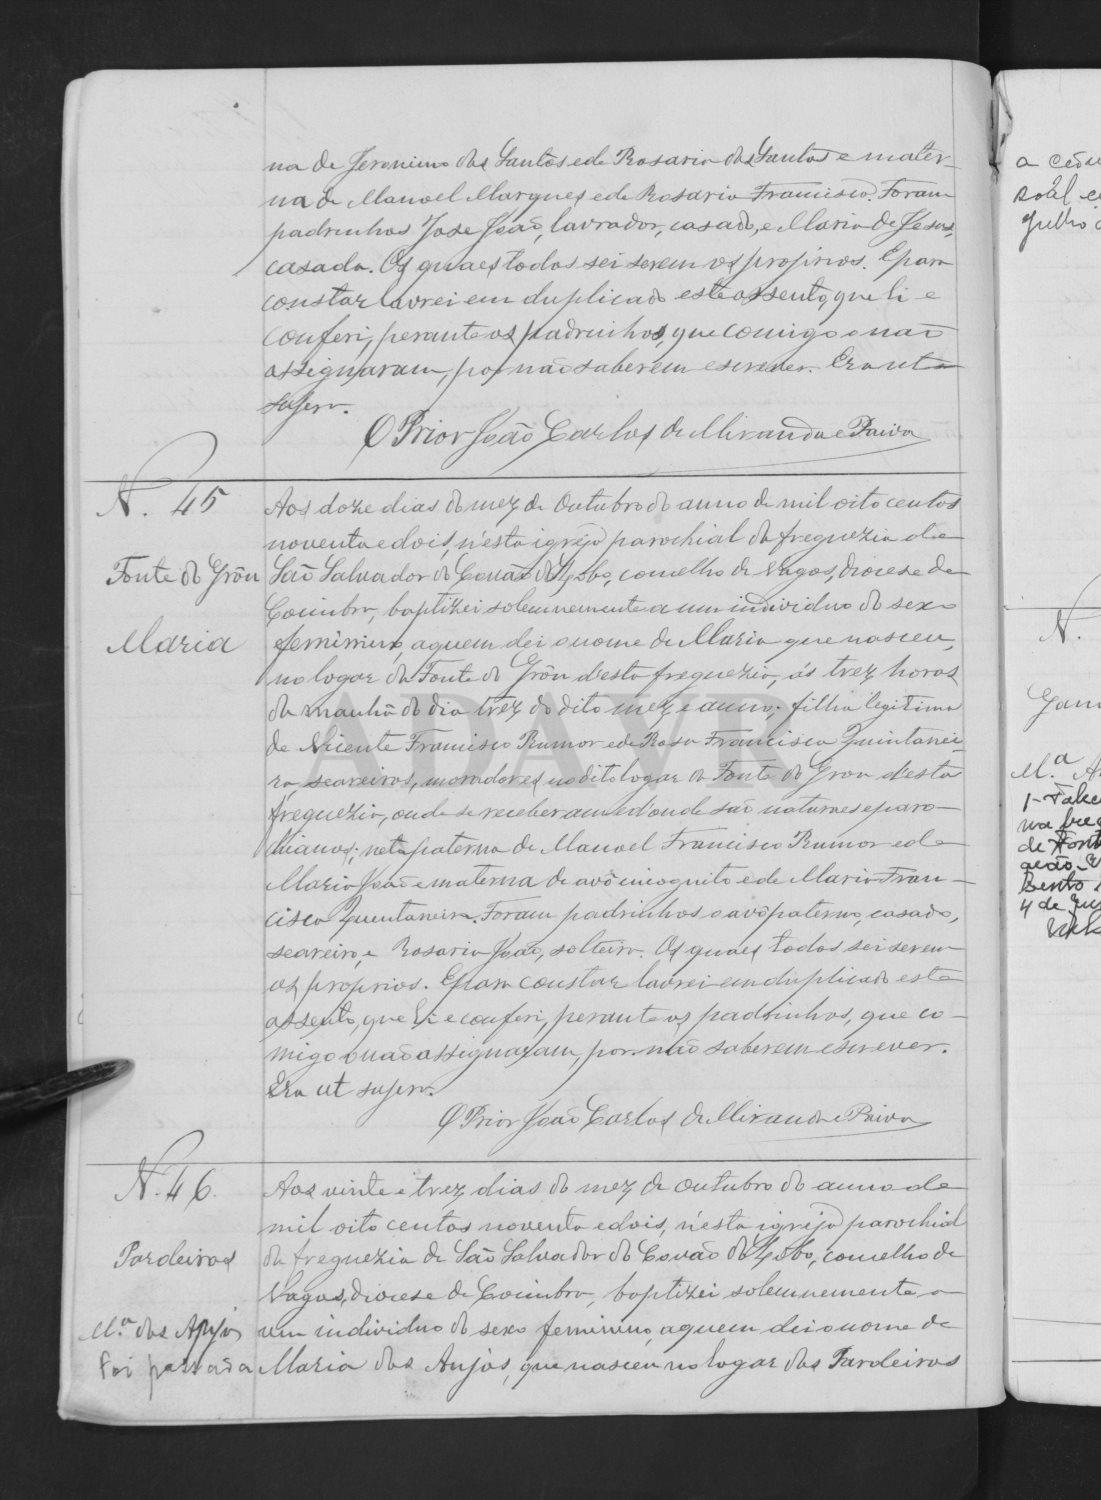 na de Jeronimo dos Santos e de Rosaria dos Santos e mater-
na de Manoel Marques e de Rosaria Francisca. Foram
padrinhos José João, lavrador, casado, e Maria de Jesus,
casada. Os quaes todos sei serem os proprios. E para
constar lavrei em duplicado este assento, que li e
conferi, perante os padrinhos, que comigo o não
assignaram, por não saberem escrever. Era ut
supra.
O Prior João Carlos de Miranda e Paiva
N. 45
Fonte do Grôu
Maria
Aos doze dias do mez de Outubro do anno de mil oito centos
noventa e dois, n'esta igreja parochial da freguezia de
São Salvador do Covão do Lobo, concelho de Vagos, diocese de
Coimbra, baptizei solemnemente a um individuo do sexo
feminino, a quem dei o nome de Maria que nasceu,
no logar da Fonte do Grôu d'esta freguezia, ás trez horas
da manhã do dia trez do dito mez e anno; filha legitima
de Vicente Francisco Rumor e de Rosa Francisca Quintanei-
ra, seareiros, moradores no dito logar da Fonte do Grou d'esta
freguezia, onde se receberam e d'onde são naturaes e paro-
chianos; neta paterna de Manoel Francisco Rumor e de
Maria João e materna de avô incognito e de Maria Fran-
cisca Quentaneira. Foram padrinhos o avô paterno, casado,
seareiro, e Rosaria João, solteira. Os quaes todos sei serem
os proprios. E para constar lavrei em duplicado este
assento, que li e conferi, perante os padrinhos, que co-
migo o não assignaram, por não saberem escrever.
Era ut supra.
O Prior João Carlos de Miranda e Paiva
N. 46.
Pardeiros
M.ª dos Anjos
Foi passada
Aos vinte e trez dias do mez de Outubro do anno de
mil oito centos noventa e dois, n'esta igreja parochial
da freguezia de São Salvador do Covão do Lobo, concelho de
Vagos, diocese de Coimbra, baptizei solemnemente a
um individuo do sexo feminino, a quem dei o nome de
Maria dos Anjos, que nasceu no logar dos Pardeiros
ADAVR
N.
M.ª
de
4 de